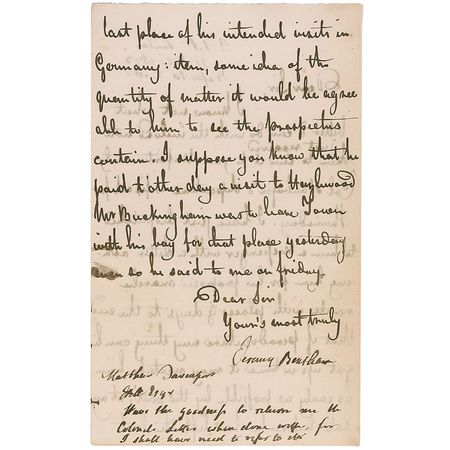 last place of his intended visits in
Germany: item, some idea of the
quantity of matter it would be agree
able to him to see the prospectus
contain. I suppose you know that he
paid t'other day a visit to Hazlewood
Mr Buckingham was to leave Town
with his boy for that place yesterday
even as he said to me on friday.
Dear Sir
Your's most truly
Jeremy Bentham
Matthew Davenport
Hill Esqr
Have the goodness to return me the
Colonel's Letter when done with, for
I shall have need to refer to it